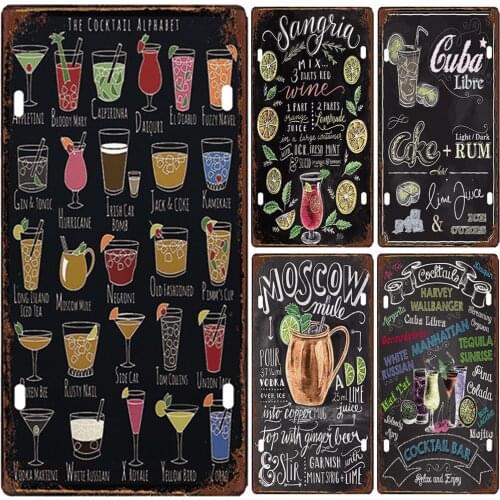 THE COCKTAIL ALPHABET
APPLETINI
BLOODY MARY
CAIPIRINHA
DAIQURI
EL DIABLO
FUZZY NAVEL
GIN & TONIC
HURRICANE
IRISH CAR
BOMB
JACK & COKE
KAMIKAZE
LONG ISLAND
ICED TEA
MOSCOW MULE
NEGRONI
OLD FASHIONED
PIMM'S CUP
QUEEN BEE
RUSTY NAIL
SIDE CAR
TOM COLLINS
UNION JACK
VODKA MARTINI
WHITE RUSSIAN
X ROYALE
YELLOW BIRD
Sangria
MIX...
3 PARTS RED
wine
1 PART
mango
JUICE
2 PARTS
Lemonade
in a large container
ICE IRISH MINT
&
Cuba
Libre
Light/Dark
Coke + RUM
Add
lime Juice
& ICE
CUBES
MOSCOW
mule
POUR
37½ml
VODKA
OVER ICE
25ml
LIME
juice
into copper mug
Top with ginger beer
& Stir
GARNISH
with
MINT SPRIG
Cocktails
HARVEY
WALLBANGER
Cuba Libre
MANHATTAN
WHITE
RUSSIAN
TEQUILA
SUNRISE
Mai Tai
Pina
Colada
Slowly
Mojito
COCKTAIL BAR
Relax and Enjoy